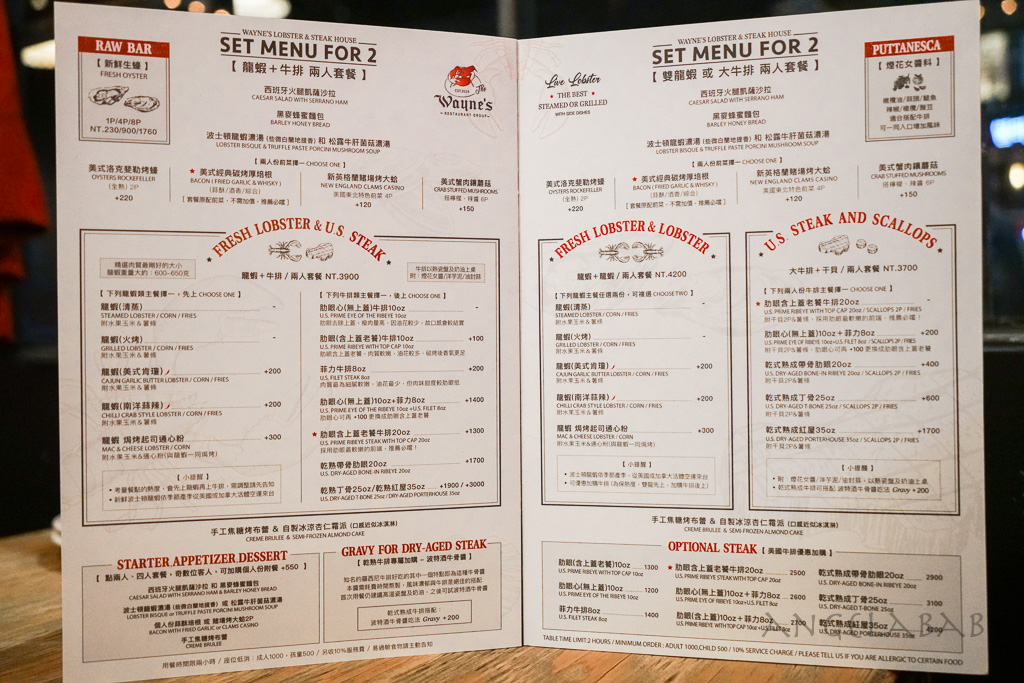 RAW BAR
【 新鮮生蠔 】
FRESH OYSTER
1P/4P/8P
NT.230/900/1760
WAYNE'S LOBSTER & STEAK HOUSE
SET MENU FOR 2
【 龍蝦＋牛排 兩人套餐 】
The Wayne's
RESTAURANT GROUP
西班牙火腿凱薩沙拉
CAESAR SALAD WITH SERRANO HAM
黑麥蜂蜜麵包
BARLEY HONEY BREAD
波士頓龍蝦濃湯 (些微白蘭地提香) 和 松露牛肝菌菇濃湯
LOBSTER BISQUE & TRUFFLE PASTE PORCINI MUSHROOM SOUP
【 兩人份前菜擇一 CHOOSE ONE 】
美式洛克斐勒烤蠔
OYSTERS ROCKEFELLER
(全熟) 2P
+220
★ 美式經典碳烤厚培根
BACON ( FRIED GARLIC & WHISKY )
(蒜酥/酒香/綜合)
[ 套餐原配前菜，不需加價，推薦必嚐 ]
新英格蘭賭場烤大蛤
NEW ENGLAND CLAMS CASINO
美國東北特色前菜 4P
+120
美式蟹肉鑲蘑菇
CRAB STUFFED MUSHROOMS
搭檸檬、辣醬 6P
+150
FRESH LOBSTER & U.S. STEAK
精選肉質最剛好的大小
龍蝦重量大約：600~650克
龍蝦＋牛排 / 兩人套餐 NT.3900
牛排以熱瓷盤及奶油上桌
附：煙花女醬/洋芋泥/油封蒜
【 下列龍蝦類主餐擇一，先上 CHOOSE ONE 】
龍蝦(清蒸) -
STEAMED LOBSTER / CORN / FRIES
附水果玉米 & 薯條
龍蝦(火烤) -
GRILLED LOBSTER / CORN / FRIES
附水果玉米 & 薯條
龍蝦(美式肯瓊) +200
CAJUN GARLIC BUTTER LOBSTER / CORN / FRIES
附水果玉米 & 薯條
龍蝦(南洋蒜辣) +200
CHILLI CRAB STYLE LOBSTER / CORN / FRIES
附水果玉米 & 薯條
龍蝦 焗烤起司通心粉 +300
MAC & CHEESE LOBSTER / CORN
附水果玉米&通心粉(與龍蝦一同焗烤)
【 小提醒 】
• 考量餐點的熱度，會先上龍蝦再上牛排，需調整請先告知
• 新鮮波士頓龍蝦依季節產季從美國或加拿大活體空運來台
【 下列牛排類主餐擇一，後上 CHOOSE ONE 】
肋眼心(無上蓋)牛排10oz -
U.S. PRIME EYE OF THE RIBEYE 10oz
肋眼去除上蓋，瘦肉量高，因油花較少，故口感會較結實
肋眼(含上蓋老饕)10oz +100
U.S. PRIME RIBEYE WITH TOP CAP 10oz
肋眼含上蓋老饕，肉質軟嫩，油花較多，碳烤後香氣更足
菲力牛排8oz +200
U.S. FILET STEAK 8oz
肉質最為細膩軟嫩，油花最少，但肉味甜度較肋眼低
肋眼心(無上蓋)10oz+菲力8oz +1400
U.S. PRIME EYE OF THE RIBEYE 10oz+U.S. FILET 8oz
肋眼心可再 +100 更換成肋眼含上蓋老饕
★ 肋眼含上蓋老饕牛排20oz +1300
U.S. PRIME RIBEYE STEAK WITH TOP CAP 20oz
採用肋眼最軟嫩的前端，推薦必嚐！
乾熟帶骨肋眼20oz +1700
U.S. DRY-AGED BONE-IN RIBEYE 20oz
乾熟丁骨25oz/乾熟紅屋35oz +1900 / +3000
U.S. DRY-AGED T-BONE 25oz/ DRY-AGED PORTERHOUSE 35oz
手工焦糖烤布蕾 & 自製冰涼杏仁霜派 (口感近似冰淇淋)
CREME BRULEE & SEMI-FROZEN ALMOND CAKE
STARTER APPETIZER DESSERT
【 點兩人、四人套餐，奇數位客人，可加購個人份附餐 +550 】
西班牙火腿凱薩沙拉 和 黑麥蜂蜜麵包
CAESAR SALAD WITH SERRANO HAM & BARLEY HONEY BREAD
波士頓龍蝦濃湯 (些微白蘭地提香) 或 松露牛肝菌菇濃湯
LOBSTER BISQUE or TRUFFLE PASTE PORCINI MUSHROOM SOUP
個人份蒜酥培根 或 賭場烤大蛤2P
BACON WITH FRIED GARLIC or CLAMS CASINO
手工焦糖烤布蕾
CREME BRULEE
GRAVY FOR DRY-AGED STEAK
【 乾熟牛排專屬加購 - 波特酒牛骨醬 】
知名的羅西尼牛排好吃的其中一個特點即為這種牛骨醬
本醬需耗費時間熬製，風味濃郁與牛排是絕佳的搭配
首次用餐仍建議高溫瓷盤及奶油，之後可試波特酒牛骨醬
乾式熟成牛排搭配：
波特酒牛骨醬吃法 Gravy +200
用餐時間限兩小時 / 座位低消：成人1000、孩童500 / 另收10%服務費 / 易過敏食物請主動告知
Live Lobster
★ THE BEST ★
STEAMED OR GRILLED
WITH SIDE DISHES
WAYNE'S LOBSTER & STEAK HOUSE
SET MENU FOR 2
【 雙龍蝦 或 大牛排 兩人套餐 】
PUTTANESCA
【 煙花女醬料 】
橄欖油/蒜頭/鯷魚
辣椒/橄欖/酸豆
適合搭配牛排
可一同入口增加風味
西班牙火腿凱薩沙拉
CAESAR SALAD WITH SERRANO HAM
黑麥蜂蜜麵包
BARLEY HONEY BREAD
波士頓龍蝦濃湯 (些微白蘭地提香) 和 松露牛肝菌菇濃湯
LOBSTER BISQUE & TRUFFLE PASTE PORCINI MUSHROOM SOUP
【 兩人份前菜擇一 CHOOSE ONE 】
美式洛克斐勒烤蠔
OYSTERS ROCKEFELLER
(全熟) 2P
+220
★ 美式經典碳烤厚培根
BACON ( FRIED GARLIC & WHISKY )
(蒜酥/酒香/綜合)
[ 套餐原配前菜，不需加價，推薦必嚐 ]
新英格蘭賭場烤大蛤
NEW ENGLAND CLAMS CASINO
美國東北特色前菜 4P
+120
美式蟹肉鑲蘑菇
CRAB STUFFED MUSHROOMS
搭檸檬、辣醬 6P
+150
FRESH LOBSTER & LOBSTER
龍蝦＋龍蝦 / 兩人套餐 NT.4200
【 下列龍蝦主餐任選兩份，可複選 CHOOSE TWO 】
龍蝦(清蒸) -
STEAMED LOBSTER / CORN / FRIES
附水果玉米 & 薯條
龍蝦(火烤) -
GRILLED LOBSTER / CORN / FRIES
附水果玉米 & 薯條
龍蝦(美式肯瓊) +200
CAJUN GARLIC BUTTER LOBSTER / CORN / FRIES
附水果玉米 & 薯條
龍蝦(南洋蒜辣) +200
CHILLI CRAB STYLE LOBSTER / CORN / FRIES
附水果玉米 & 薯條
龍蝦 焗烤起司通心粉 +300
MAC & CHEESE LOBSTER / CORN
附水果玉米&通心粉(與龍蝦一同焗烤)
【 小提醒 】
• 波士頓龍蝦依季節產季，從美國或加拿大活體空運來台
• 可優惠加購牛排 (為保熱度，雙龍先上，加購牛排後上)
U.S. STEAK AND SCALLOPS
大牛排＋干貝 / 兩人套餐 NT.3700
【 下列兩人份牛排主餐擇一 CHOOSE ONE 】
★ 肋眼含上蓋老饕牛排20oz -
U.S. PRIME RIBEYE WITH TOP CAP 20oz / SCALLOPS 2P / FRIES
附干貝2P&薯條，採用肋眼最軟嫩的前端，推薦必嚐！
肋眼心(無上蓋)10oz＋菲力8oz +200
U.S. PRIME EYE OF RIBEYE 10oz+U.S. FILET 8oz / SCALLOPS 2P / FRIES
附干貝2P&薯條，肋眼心可再 +100 更換成肋眼含上蓋老饕
乾式熟成帶骨肋眼20oz +400
U.S. DRY-AGED BONE-IN RIBEYE 20oz / SCALLOPS 2P / FRIES
附干貝2P&薯條
乾式熟成丁骨25oz +600
U.S. DRY-AGED T-BONE 25oz / SCALLOPS 2P / FRIES
附干貝2P&薯條
乾式熟成紅屋35oz +1700
U.S. DRY-AGED PORTERHOUSE 35oz / SCALLOPS 2P / FRIES
附干貝2P&薯條
【 小提醒 】
• 附：煙花女醬/洋芋泥/油封蒜，以熱瓷盤及奶油上桌
• 乾式熟成牛排可搭配 波特酒牛骨醬吃法 Gravy +200
手工焦糖烤布蕾 & 自製冰涼杏仁霜派 (口感近似冰淇淋)
CREME BRULEE & SEMI-FROZEN ALMOND CAKE
OPTIONAL STEAK 【 美國牛排優惠加購 】
肋眼(含上蓋老饕)10oz 1300
U.S. PRIME RIBEYE WITH TOP CAP 10oz
肋眼心(無上蓋)10oz 1200
U.S. PRIME EYE OF THE RIBEYE 10oz
菲力牛排8oz 1400
U.S. FILET STEAK 8oz
★ 肋眼含上蓋老饕牛排20oz 2500
U.S. PRIME RIBEYE STEAK WITH TOP CAP 20oz
肋眼心(無上蓋)10oz＋菲力8oz 2600
U.S. PRIME EYE OF RIBEYE 10oz+U.S. FILET 8oz
肋眼(含上蓋)10oz＋菲力8oz 2700
U.S. PRIME RIBEYE WITH TOP CAP 10oz+U.S. FILET 8oz
乾式熟成帶骨肋眼20oz 2900
U.S. DRY-AGED BONE-IN RIBEYE 20oz
乾式熟成丁骨25oz 3100
U.S. DRY-AGED T-BONE 25oz
乾式熟成紅屋35oz 4200
U.S. DRY-AGED PORTERHOUSE 35oz
TABLE TIME LIMIT:2 HOURS / MINIMUM ORDER : ADULT 1000,CHILD 500 / 10% SERVICE CHARGE / PLEASE TELL US IF YOU ARE ALLERGIC TO CERTAIN FOOD
ANGELABAB